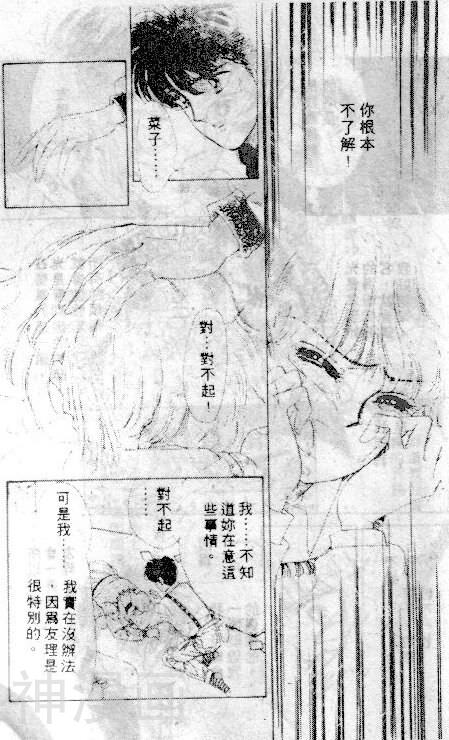 你根本
不了解！
菜子……
對…對不起！
我……不知
道妳在意這
些事情。
對不起
……
可是我……
我實在沒辦法
，因為友理是
很特別的。
神漫画